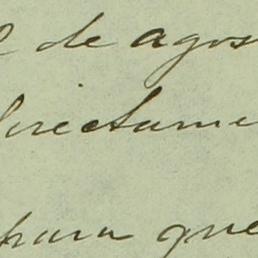 de agos
directame
para que